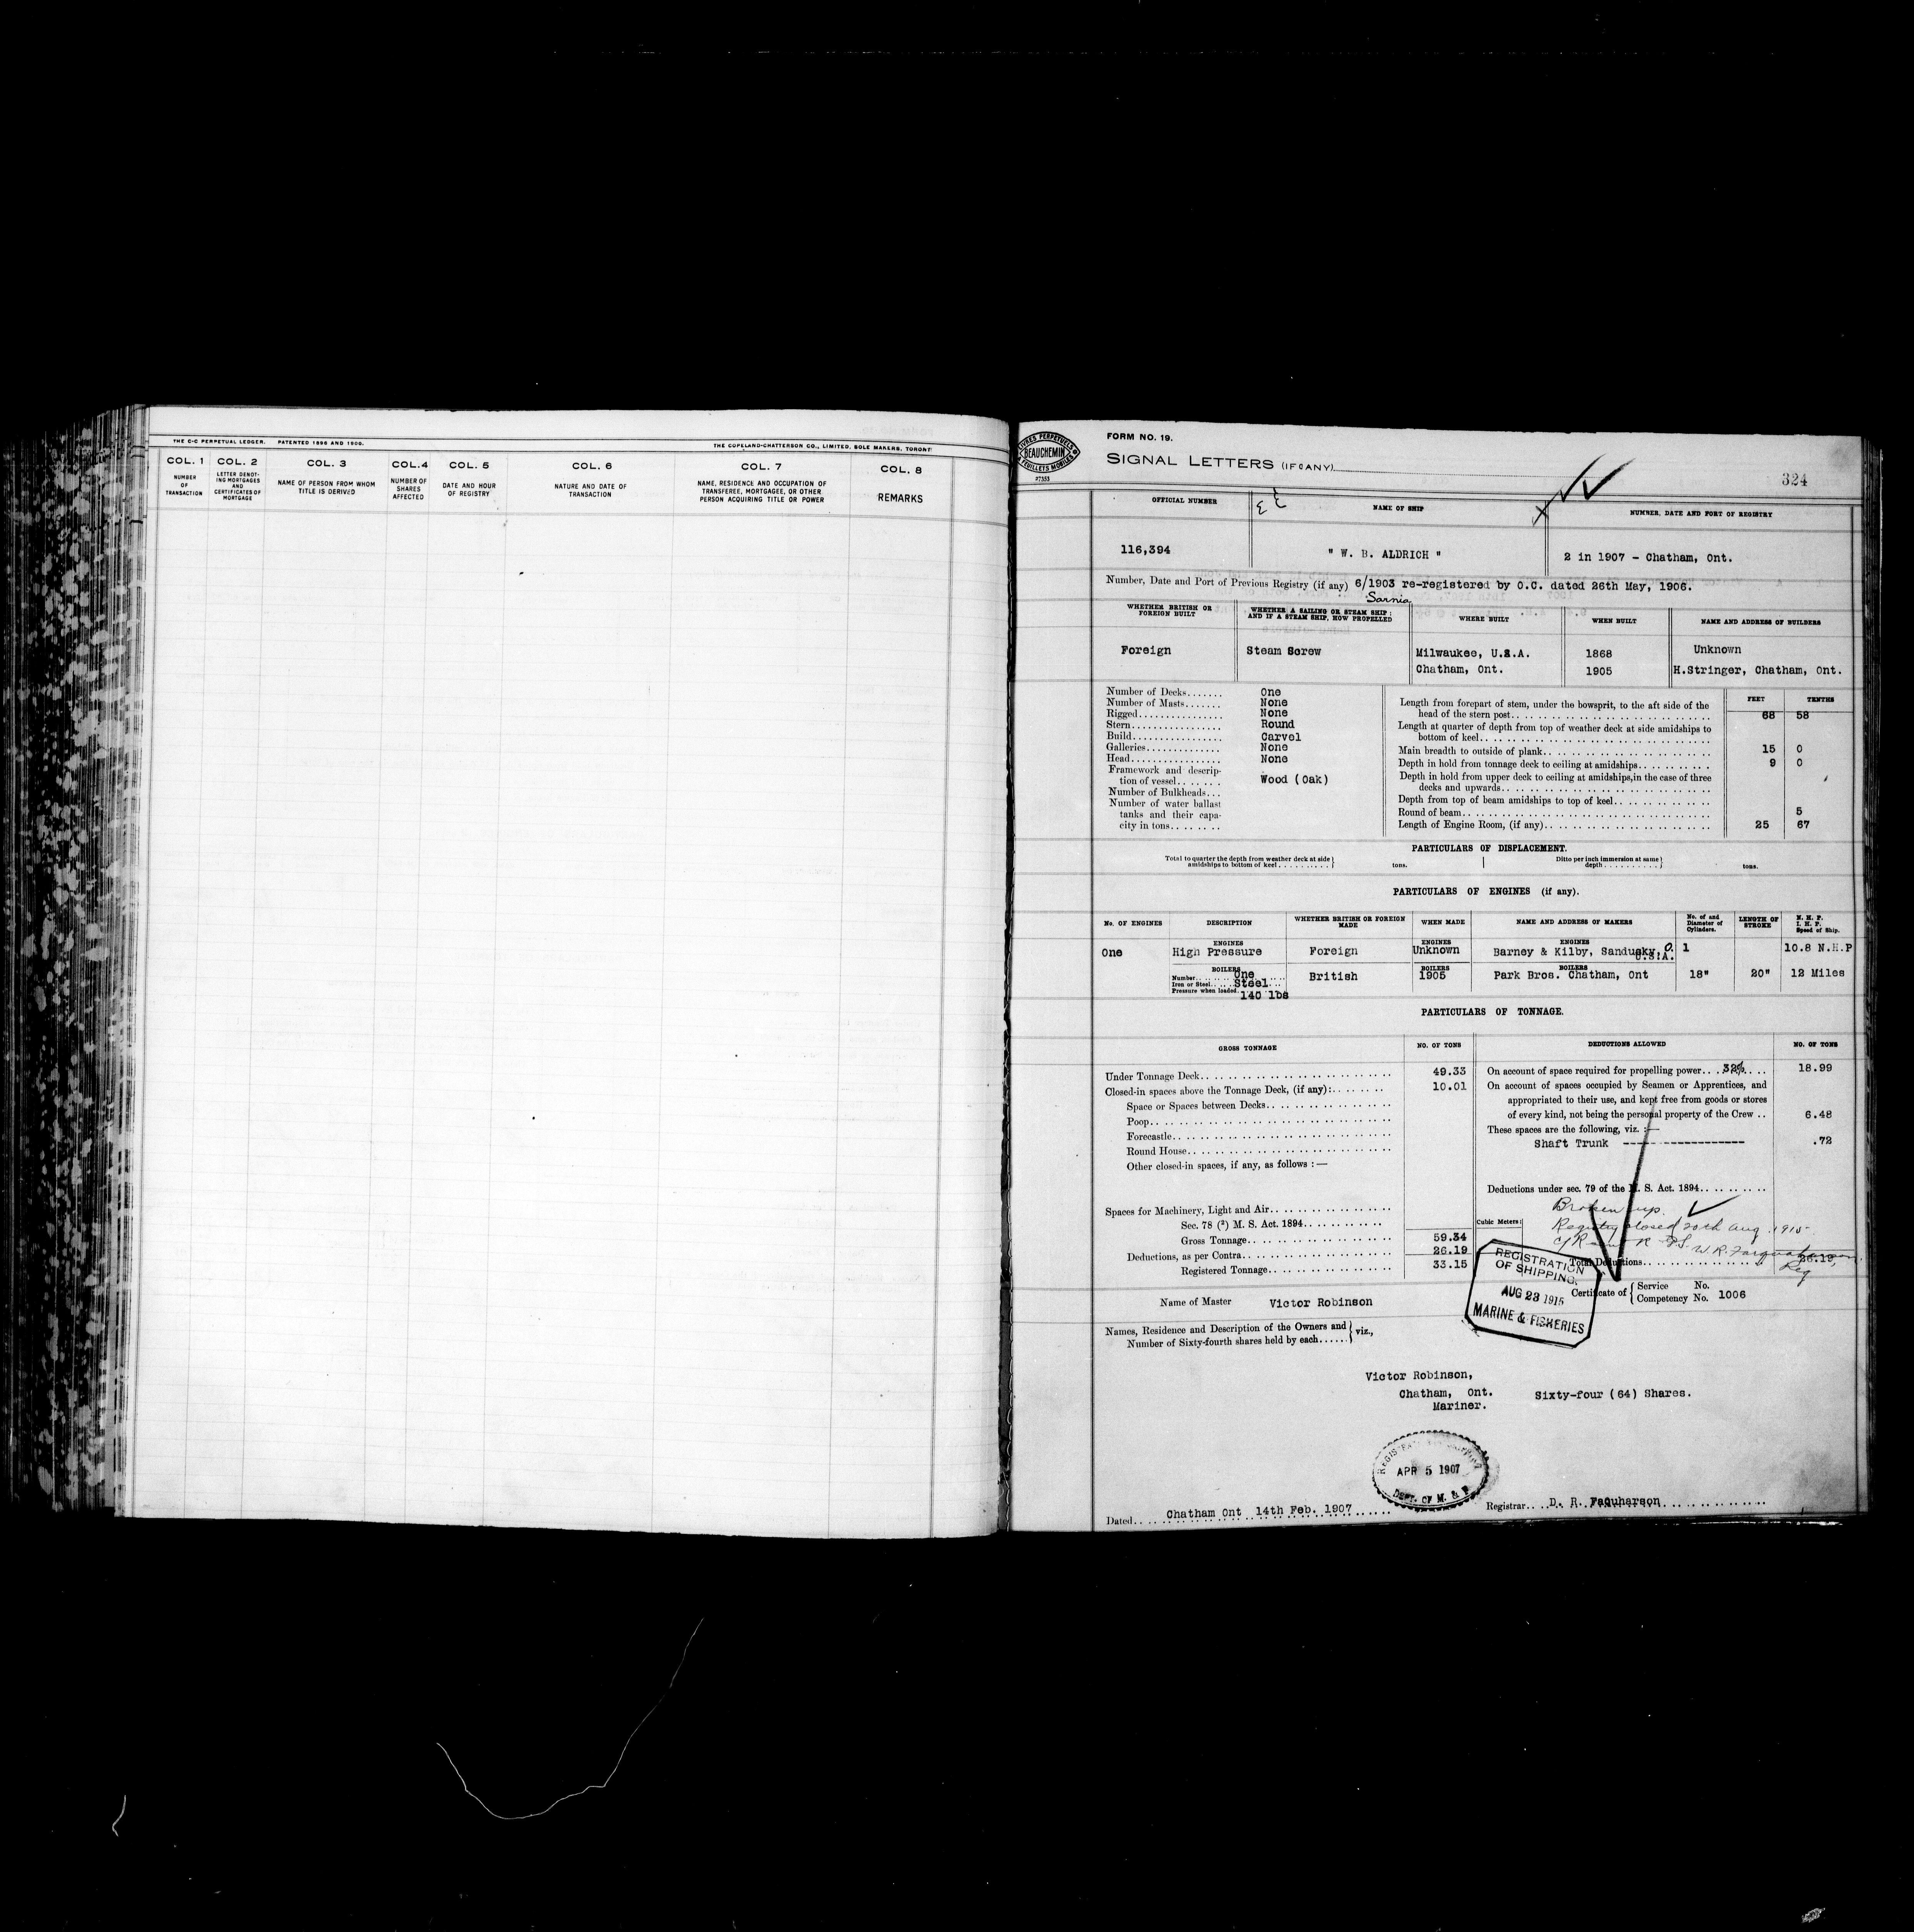 THE C-C PERPETUAL LEDGER. PATENTED 1896 AND 1900. THE COPELAND-CHATTERSON CO., LIMITED, SOLE MAKERS, TORONT
COL. 1 COL. 2 COL. 3 COL.4 COL. 5 COL. 6 COL. 7 COL. 8
NUMBER OF TRANSACTION
LETTER DENOT-ING MORTGAGES AND CERTIFICATES OF MORTGAGE
NAME OF PERSON FROM WHOM TITLE IS DERIVED
NUMBER OF SHARES AFFECTED
DATE AND HOUR OF REGISTRY
NATURE AND DATE OF TRANSACTION
NAME, RESIDENCE AND OCCUPATION OF TRANSFEREE, MORTGAGEE, OR OTHER PERSON ACQUIRING TITLE OR POWER
REMARKS
LIVRES PERPETUELS
BEAUCHEMIN
FEUILLETS MOBILES
27353
FORM NO. 19.
SIGNAL LETTERS (IF ANY)
324
OFFICIAL NUMBER NAME OF SHIP NUMBER, DATE AND PORT OF REGISTRY
116,394 " W. B. ALDRICH " 2 in 1907 - Chatham, Ont.
Number, Date and Port of Previous Registry (if any) 6/1903 re-registered by O.C. dated 26th May, 1906.
Sarnia
WHETHER BRITISH OR FOREIGN BUILT
WHETHER A SAILING OR STEAM SHIP; AND IF A STEAM SHIP, HOW PROPELLED
WHERE BUILT
WHEN BUILT
NAME AND ADDRESS OF BUILDERS
Foreign Steam Screw Milwaukee, U.S.A. 1868 Unknown
Chatham, Ont. 1905 H.Stringer, Chatham, Ont.
Number of Decks....... One
Number of Masts....... None
Rigged................ None
Stern................. Round
Build................. Carvel
Galleries.............. None
Head.................. None
Framework and descrip-
tion of vessel........ Wood (Oak)
Number of Bulkheads...
Number of water ballast
tanks and their capa-
city in tons........
FEET TENTHS
Length from forepart of stem, under the bowsprit, to the aft side of the
head of the stern post.......... 68 58
Length at quarter of depth from top of weather deck at side amidships to
bottom of keel..........
Main breadth to outside of plank.......... 15 0
Depth in hold from tonnage deck to ceiling at amidships.......... 9 0
Depth in hold from upper deck to ceiling at amidships, in the case of three
decks and upwards..........
Depth from top of beam amidships to top of keel..........
Round of beam.......... 5
Length of Engine Room, (if any).......... 25 67
PARTICULARS OF DISPLACEMENT.
Total to quarter the depth from weather deck at side
amidships to bottom of keel.......... tons.
Ditto per inch immersion at same
depth.......... tons.
PARTICULARS OF ENGINES (if any).
No. OF ENGINES DESCRIPTION WHETHER BRITISH OR FOREIGN MADE WHEN MADE NAME AND ADDRESS OF MAKERS No. of and Diameter of Cylinders. LENGTH OF STROKE N. H. P. I. H. P. Speed of Ship.
ENGINES ENGINES ENGINES
One High Pressure Foreign Unknown Barney & Kilby, Sandusky, O. U.S.A. 1 10.8 N.H.P
BOILERS BOILERS BOILERS
Number.......... One British 1905 Park Bros. Chatham, Ont 18" 20" 12 Miles
Iron or Steel.... Steel
Pressure when loaded. 140 lbs
PARTICULARS OF TONNAGE.
GROSS TONNAGE NO. OF TONS DEDUCTIONS ALLOWED NO. OF TONS
Under Tonnage Deck.......... 49.33
Closed-in spaces above the Tonnage Deck, (if any):........ 10.01
Space or Spaces between Decks..........
Poop..........
Forecastle..........
Round House..........
Other closed-in spaces, if any, as follows : —
Spaces for Machinery, Light and Air..........
Sec. 78 (²) M. S. Act. 1894..........
Gross Tonnage.......... 59.34
Deductions, as per Contra.......... 26.19
Registered Tonnage.......... 33.15
On account of space required for propelling power.... 32%.... 18.99
On account of spaces occupied by Seamen or Apprentices, and
appropriated to their use, and kept free from goods or stores
of every kind, not being the personal property of the Crew .. 6.48
These spaces are the following, viz. :—
Shaft Trunk ------------------- .72
Deductions under sec. 79 of the M. S. Act. 1894..........
Broken up.
Cubic Meters:
Registry closed 20th Aug 1915
W R. Farquharson
Reg
Total Deductions.......... 26.19
REGISTRATION
OF SHIPPING.
AUG 23 1915
MARINE & FISHERIES
Certificate of { Service No.
Competency No. 1006
Name of Master Victor Robinson
Names, Residence and Description of the Owners and
Number of Sixty-fourth shares held by each...... } viz.,
Victor Robinson,
Chatham, Ont. Sixty-four (64) Shares.
Mariner.
APR 5 1907
DEPT. OF M. & F.
Dated.... Chatham Ont 14th Feb. 1907 Registrar.... D. R. Faquharson